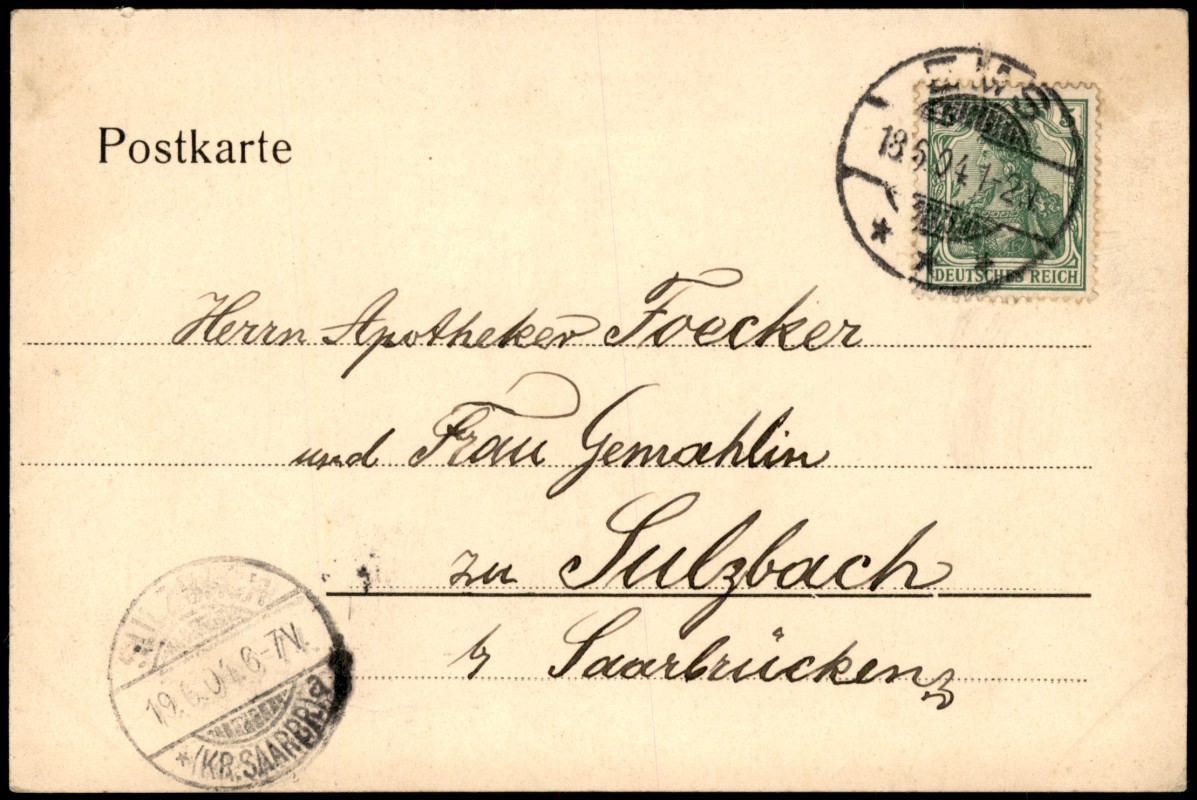 Postkarte
EMS
18.6.04 1-2N
5
DEUTSCHES REICH
Herrn Apotheker Foecker
und Frau Gemahlin
zu Sulzbach
b/ Saarbrücken
SULZBACH
19.6.04.6-7V.
*(KR.SAARBR.)a